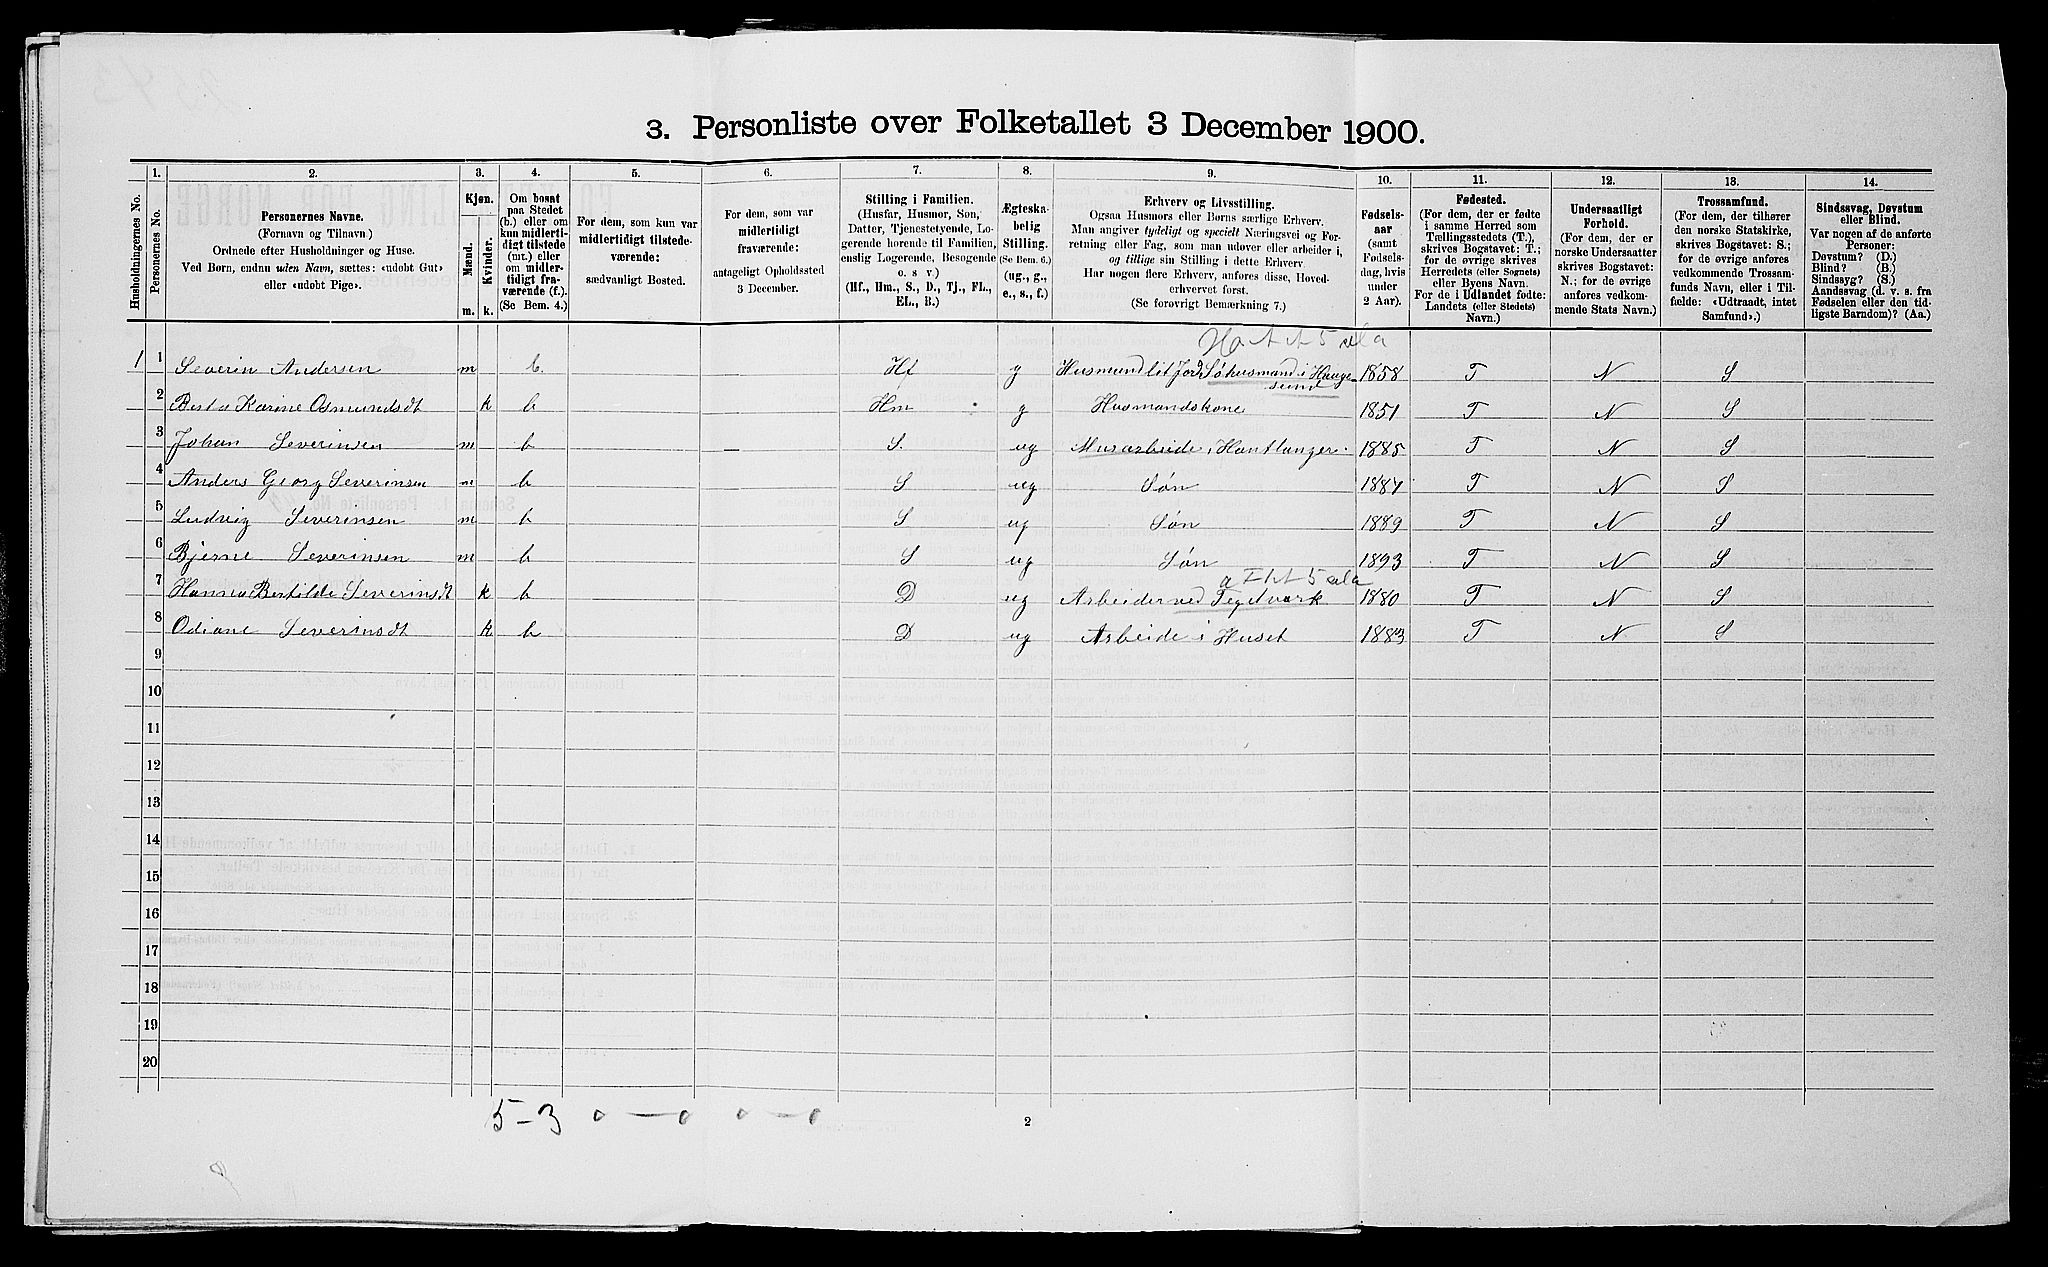 3. Personliste over Folketallet 3 December 1900.
Husholdningernes No.
1.
Personernes No.
2.
Personernes Navne.
(Fornavn og Tilnavn.)
Ordnede efter Husholdninger og Huse.
Ved Børn, endnu uden Navn, sættes: «udøbt Gut»
eller «udøbt Pige».
3.
Kjøn.
Mænd.
Kvinder.
m.
k.
4.
Om bosat
paa Stedet
(b.) eller om
kun midlerti-
digt tilstede
(mt.) eller
om midler-
tidigt fra-
værende (f.).
(Se Bem. 4.)
5.
For dem, som kun var
midlertidigt tilstede-
værende:
sædvanligt Bosted.
6.
For dem, som var
midlertidigt
fraværende:
antageligt Opholdssted
3 December.
7.
Stilling i Familien.
(Husfar, Husmor, Søn,
Datter, Tjenestetyende, Lo-
gerende hørende til Familien,
enslig Logerende, Besøgende
o. s v.)
(Hf., Hm., S., D., Tj., FL.,
EL., B.)
8.
Ægteska-
belig
Stilling.
(Se Bem. 6.)
(ug., g.,
e., s., f.)
9.
Erhverv og Livsstilling.
Ogsaa Husmors eller Børns særlige Erhverv.
Man angiver tydeligt og specielt Næringsvei og For-
retning eller Fag, som man udøver eller arbeider i,
og tillige sin Stilling i dette Erhverv.
Har nogen flere Erhverv, anføres disse, Hoved-
erhvervet først.
(Se forøvrigt Bemærkning 7.)
10.
Fødsels-
aar
(samt
Fødsels-
dag, hvis
under
2 Aar).
11.
Fødested.
(For dem, der er fødte
i samme Herred som
Tællingsstedets (T.),
skrives Bogstavet: T.;
for de øvrige skrives
Herredets (eller Sognets)
eller Byens Navn.
For de i Udlandet fødte:
Landets (eller Stedets)
Navn.)
12.
Undersaatligt
Forhold.
(For dem, der er
norske Undersaatter
skrives Bogstavet:
N.; for de øvrige
anføres vedkom-
mende Stats Navn.)
13.
Trossamfund.
(For dem, der tilhører
den norske Statskirke,
skrives Bogstavet: S.;
for de øvrige anføres
vedkommende Trossam-
funds Navn, eller i Til-
fælde: «Udtraadt, intet
Samfund».)
14.
Sindssvag, Døvstum
eller Blind.
Var nogen af de anførte
Personer:
Døvstum? (D.)
Blind? (B.)
Sindssyg? (S.)
Aandssvag (d. v. s. fra
Fødselen eller den tid-
ligste Barndom)? (Aa.)
1 1 Severin Andersen m b. Hf g Husmand lit jord Søhusmand i Hauge- 1858 T N S
sund
2 Berta Karine Osmundsdt k b Hm g Husmandskone 1851 T N S
3 Johan Severinsen m b — S. ug Murarbeide, Hantlanger. 1885 T N S
4 Anders Georg Severinsen m b S ug Søn 1887 T N S
5 Ludvig Severinsen m b S ug Søn 1889 T N S
6 Bjerne Severinsen m b S ug Søn 1893 T N S
7 Hanna Bertilde Severinsdt k b D ug Arbeider ved Tegelverk 1880 T N S
8 Odiane Severinsdt k b D ug Arbeide i Huset 1883 T N S
9
10
11
12
13
14
15
16
17
18
19
20
5-3 0 — 0 0 — 0
2